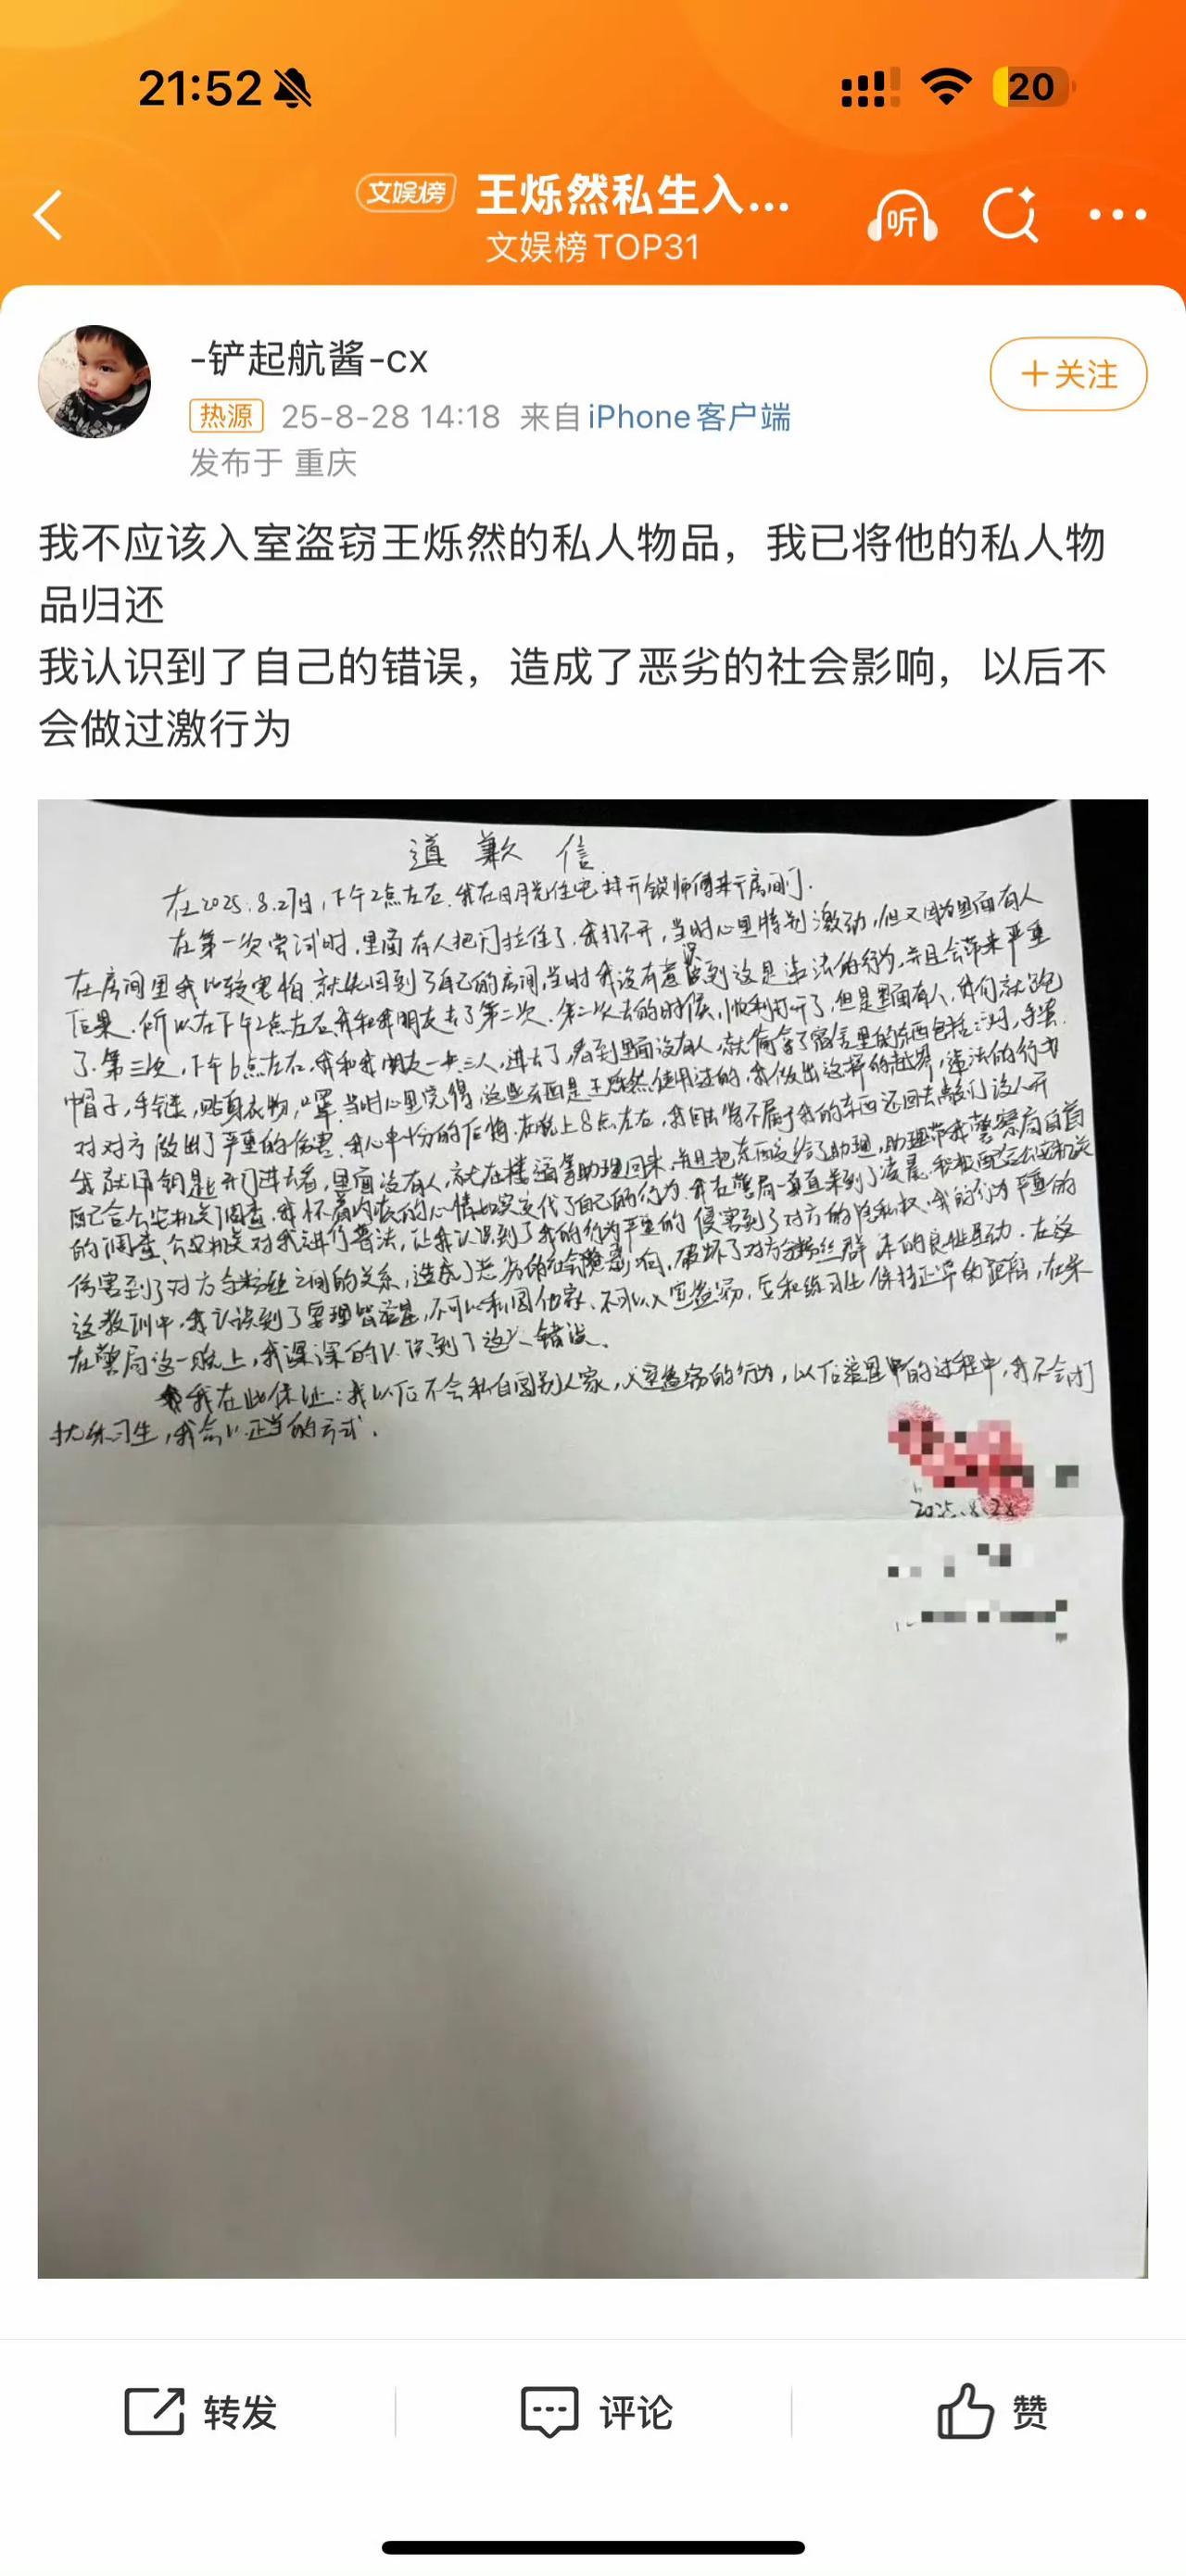 21:52
20
文娱榜 王烁然私生入...
听
文娱榜TOP31
-铲起航酱-cx
+关注
热源 25-8-28 14:18 来自 iPhone客户端
发布于 重庆
我不应该入室盗窃王烁然的私人物品，我已将他的私人物
品归还
我认识到了自己的错误，造成了恶劣的社会影响，以后不
会做过激行为
道歉信
在2025.8.27日,下午2点左右.我在日月光住宅找开锁师傅来开房间门.
在第一次尝试时.里面有人把门拉住了.我打不开,当时心里特别激动,但又因为里面有人
在房间里我比较害怕.就先回到了自己的房间,当时我没有意识到这是违法的行为,并且会带来严重
后果.所以在下午2点左右我和我朋友去了第二次.第二次去的时候,顺利打开了,但是里面有人,我们就跑
了.第三次,下午6点左右.我和我朋友一共三人,进去了,看到里面没有人,就偷拿了宿舍里的东西包括 手套.
帽子,手链,贴身衣物,口罩.当时心里觉得这些东西是王烁然使用过的.我做出这样的越界,违法的行为
对对方做出了严重的伤害.我心中十分的后悔.在晚上8点左右,我回去将不属于我的东西还回去敲门没人开
我就用钥匙开门进去看,里面没有人,就在楼道等助理回来,并且把东西交给了助理,助理带我警察局自首
配合公安机关调查.我怀着内疚的心情如实交代了自己的行为.我在警局一直呆到了凌晨.积极配合公安机关
的调查.公安机关对我进行普法,让我认识到了我的行为严重的侵害到了对方的隐私权.我的行为严重的
伤害到了对方与粉丝之间的关系,造成了恶劣的社会影响,破坏了对方与粉丝群体的良性互动.在这
这教训中,我认识到了要理智追星,不可以私闯他家.不可以入室盗窃,应和练习生保持正常的距离,在来
在警局这一晚上,我深深的认识到了这个错误.
我在此保证:我以后不会私自闯别人家,入室盗窃的行为,以后追星中的过程中,我不会打
扰练习生,我会以正当的方式.
2025.8.28
转发
评论
赞